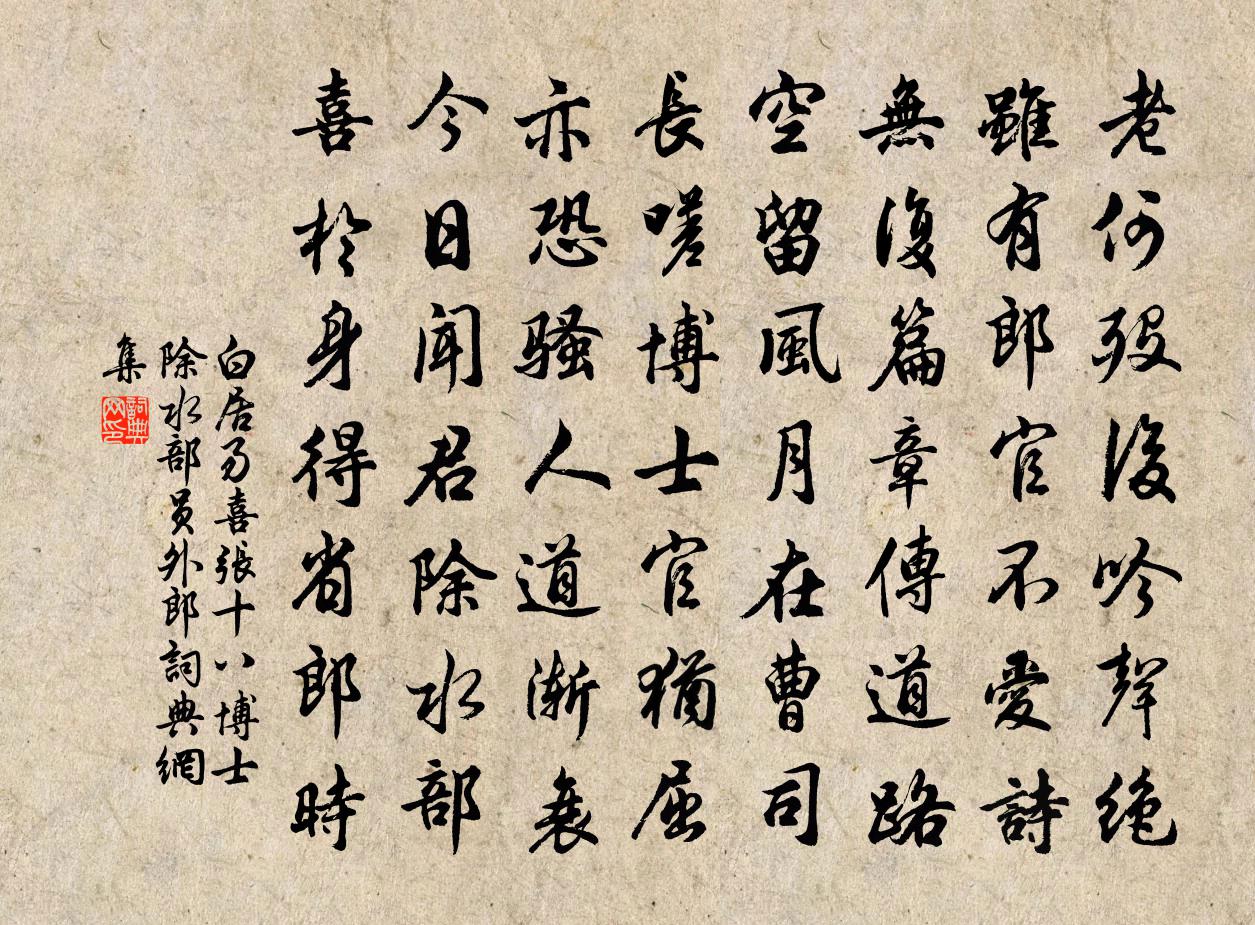 老何歿後吟聲絕
雖有郎官不愛詩
無復篇章傳道路
空留風月在曹司
長嗟博士官猶屈
亦恐騷人道漸衰
今日聞君除水部
喜於身得省郎時
白居易喜張十八博士
除水部員外郎詞典網
集
詞典
网印